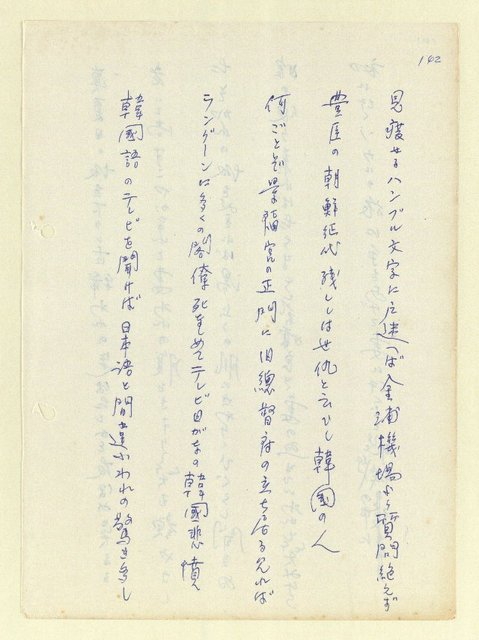 142
見渡せるハングル文字に戸迷つば金浦機場より質問絶えず
豊臣の朝鮮征伐残ししは世仇と云ひし韓国の人
何ごとぞ景福宮の正門に旧總督府の立ち居る見れば
ラングーンに多くの閣僚死をめてテレビ目がなの韓國悲憤
韓國語のテレビを聞けば日本語と間違ふわれの驚き多し